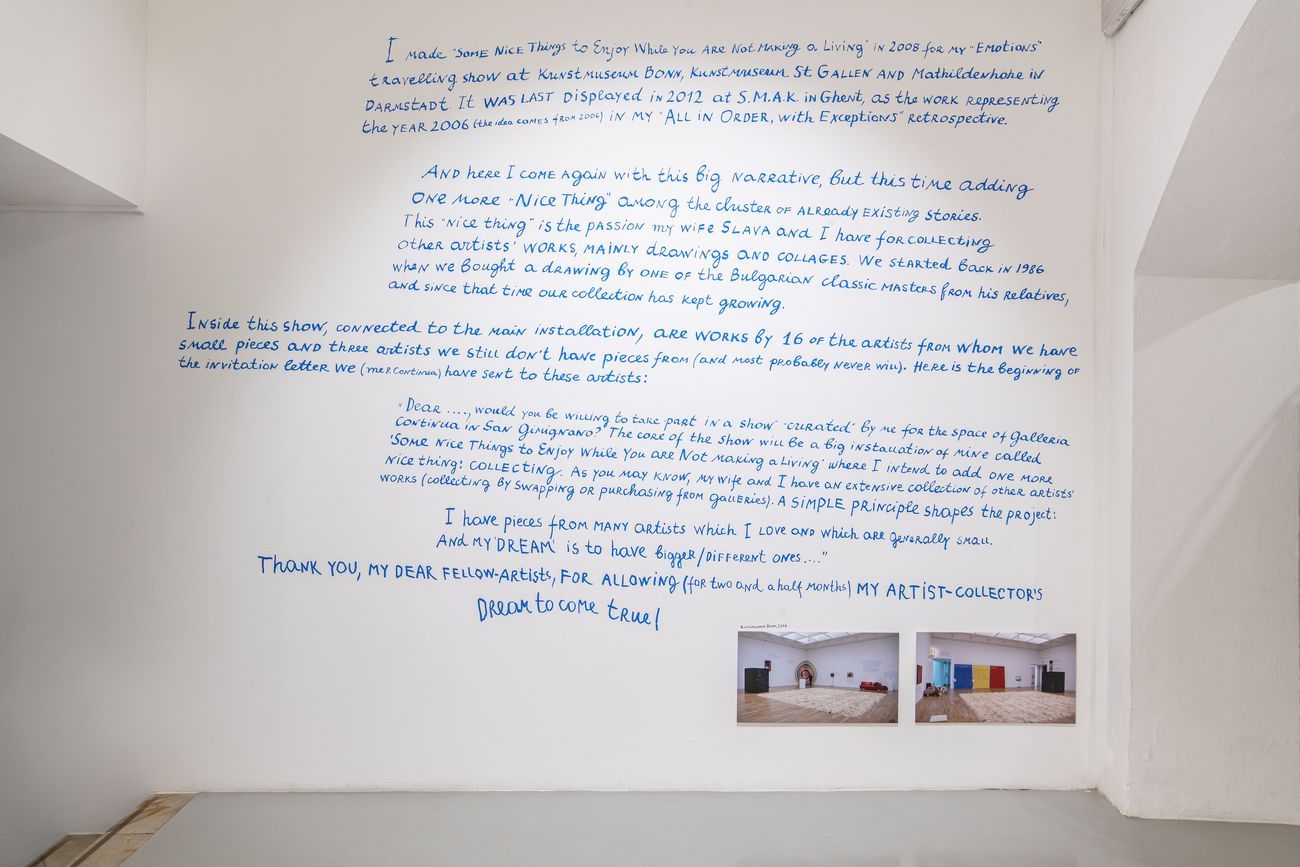 I made "Some Nice Things to Enjoy While You Are Not Making a Living" in 2008 for my "Emotions"
travelling show at Kunstmuseum Bonn, Kunstmuseum St Gallen and Mathildenhohe in
Darmstadt. It was last displayed in 2012 at S.M.A.K. in Ghent, as the work representing
the year 2006 (the idea comes from 2006) in my "All in Order, with Exceptions" retrospective.
And here I come again with this big narrative, but this time adding
one more "Nice Thing" among the cluster of already existing stories.
This "nice thing" is the passion my wife Slava and I have for collecting
other artists' works, mainly drawings and collages. We started back in 1986
when we bought a drawing by one of the Bulgarian classic masters from his relatives,
and since that time our collection has kept growing.
Inside this show, connected to the main installation, are works by 16 of the artists from whom we have
small pieces and three artists we still don't have pieces from (and most probably never will). Here is the beginning of
the invitation letter we (me & Continua) have sent to these artists:
"Dear ...., would you be willing to take part in a show "curated" by me for the space of Galleria
Continua in San Gimignano? The core of the show will be a big installation of mine called
'Some Nice Things to Enjoy While You are Not making a Living' where I intend to add one more
nice thing: collecting. As you may know, my wife and I have an extensive collection of other artists'
works (collecting by swapping or purchasing from galleries). A simple principle shapes the project:
I have pieces from many artists which I love and which are generally small.
And my 'DREAM' is to have bigger/different ones...."
Thank you, my dear fellow-artists, for allowing (for two and a half months) my artist-collector's
Dream to come true!
Kunstmuseum Bonn, 2008